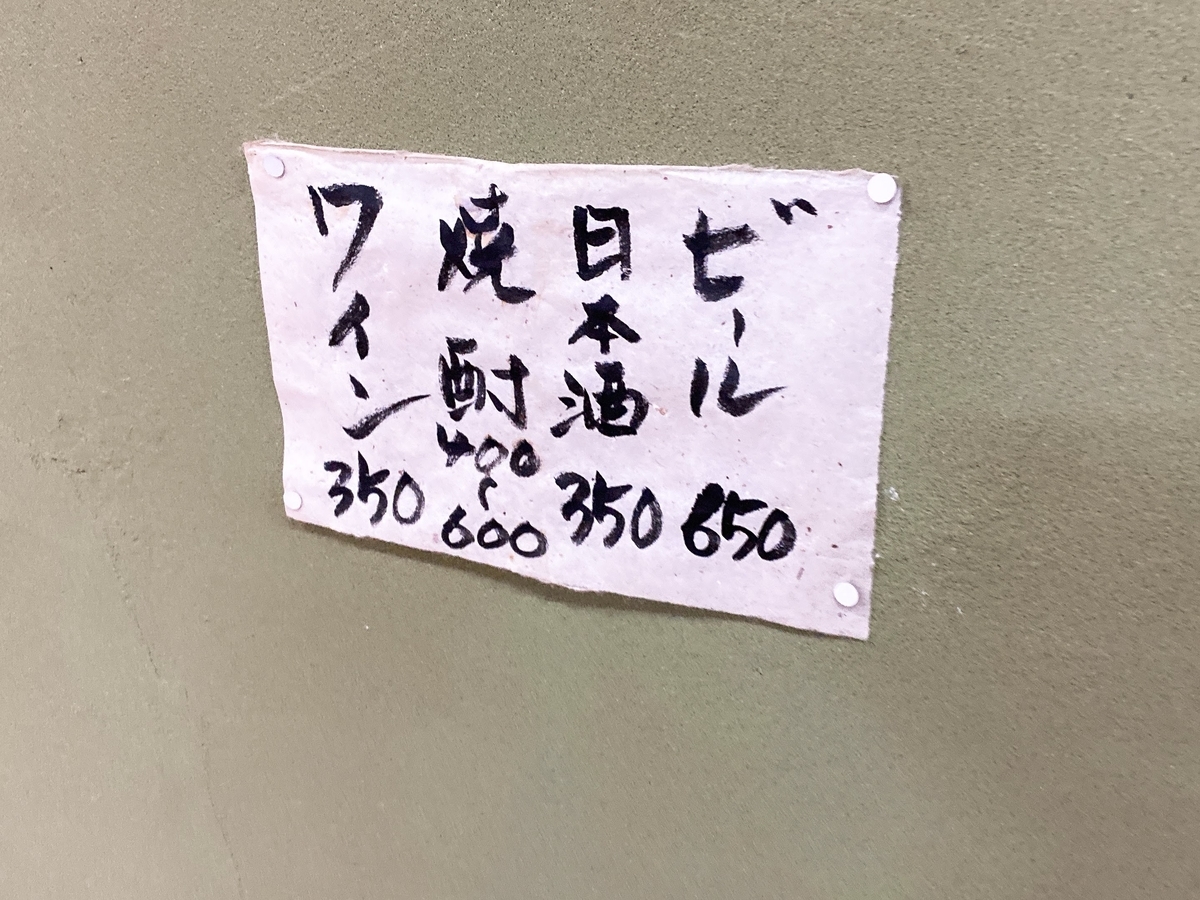 ビール 650
日本酒 350
焼酎 400〜600
ワイン 350